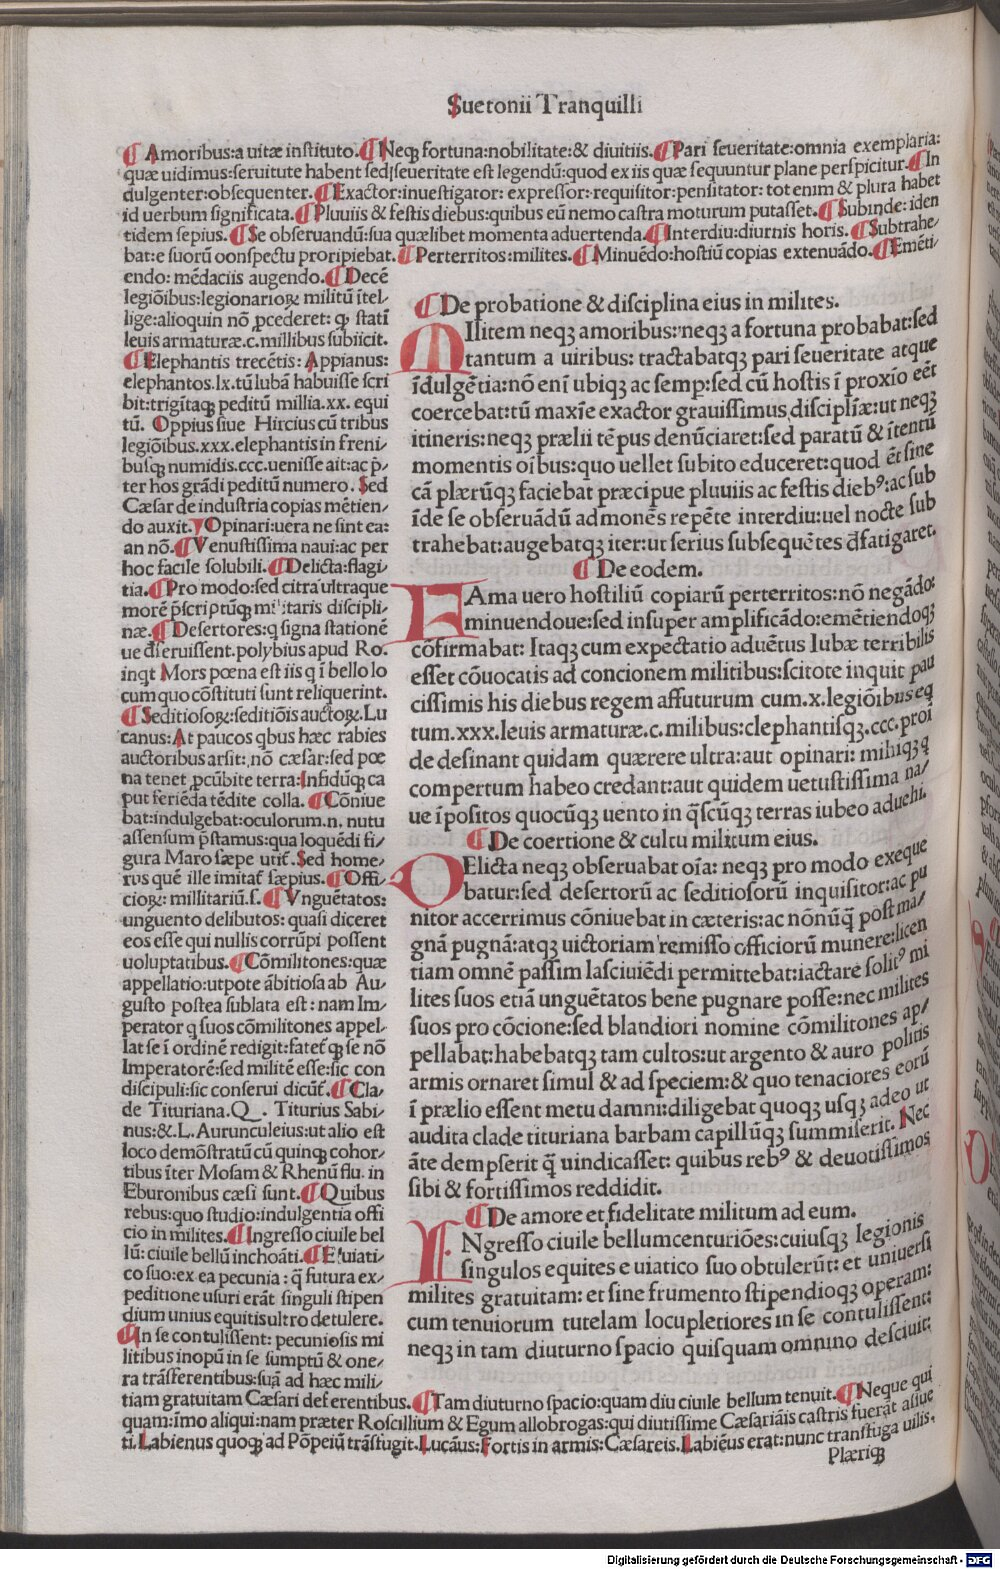 Suetonii Tranquilli
¶ Amoribus:a uitæ instituto.¶ Neqꝫ fortuna:nobilitate:& diuitiis.¶ Pari seueritate:omnia exemplaria:
quæ uidimus:seruitute habent sed seueritate est legendū:quod ex iis quæ sequuntur plane perspicitur.¶ In
dulgenter:obsequenter.¶ Exactor:inuestigator: expressor:requisitor:pensitator: tot enim & plura habet
id uerbum significata.¶ Pluuiis & festis diebus:quibus eū nemo castra moturum putasset.¶ Subinde: iden
tidem sepius.¶ Se obseruandū:sua quælibet momenta aduertenda.¶ Interdiu:diurnis horis.¶ Subtrahe/
bat:e suorū oonspectu proripiebat.¶ Perterritos:milites.¶ Minuēdo:hostiū copias extenuādo.¶ Emēti/
endo: mēdaciis augendo.¶ Decē
legiōibus:legionarioꝝ militū ītel/
lige:alioquin nō ꝓcederet: qꝫ statī
leuis armaturæ.c.millibus subiicit.
¶ Elephantis trecētis: Appianus:
elephantos.lx.tū Iubā habuisse scri
bit:trigītaqꝫ peditū millia.xx. equi
tū. Oppius siue Hircius cū tribus
legiōibus.xxx.elephantis in freni/
busqꝫ numidis.ccc.uenisse ait:ac p̄/
ter hos grādi peditū numero. Sed
Cæsar de industria copias mētien/
do auxit.¶ Opinari:uera ne sint ea:
an nō.¶ Venustissima naui:ac per
hoc facile solubili.¶ Delicta:flagi
tia.¶ Pro modo:sed citra ultraque
morē p̄scriptūqꝫ militaris discipli/
næ.¶ Desertores:q signa stationē
ue đseruissent.polybius apud Ro.
inqt Mors pœna est iis q ī bello lo
cum quo cōstituti sunt reliquerint.
¶ Seditiosoꝝ:seditiōis auctoꝝ.Lu
canus:At paucos qbus hæc rabies
auctoribus arsit: nō cæsar:sed pœ
na tenet ꝓcūbite terra:Infidūqꝫ ca
put feriēda tēdite colla.¶ Cōniue
bat:indulgebat:oculorum.n. nutu
assensum p̄stamus:qua loquēdi fi/
gura Maro sæpe utit̄. Sed home/
rus quē ille imitat̄ sæpius.¶ Offi/
cioꝝ: millitariū.s.¶ Vnguētatos:
unguento delibutos: quasi diceret
eos esse qui nullis corrūpi possent
uoluptatibus.¶ Cōmilitones:quæ
appellatio:utpote ābitiosa ab Au/
gusto postea sublata est: nam Im/
perator q suos cōmilitones appel/
lat se ī ordinē redigit:fatet̄ qꝫ se nō
Imperatorē:sed militē esse:sic con
discipuli:sic conserui dicūt̄.¶ Cla/
de Tituriana.Q. Titurius Sabi/
nus:&.L.Aurunculeius:ut alio est
loco demōstratū cū quinqꝫ cohor/
tibus īter Mosam & Rhenū flu. in
Eburonibus cæsi sunt.¶ Quibus
rebus:quo studio:indulgentia offi
cio in milites.¶ Ingresso ciuile bel
lū: ciuile bellū inchoāti.¶ E uiati/
co suo:ex ea pecunia: q̄ futura ex/
peditione usuri erāt singuli stipen
dium unius equitis ultro detulere.
¶ In se contulissent: pecuniosis mi
litibus inopū in se sumptū & one/
ra trāsferentibus:suā ad hæc mili/
¶ De probatione & disciplina eius in milites.
MIlitem neqꝫ amoribus:neqꝫ a fortuna probabat:sed
tantum a uiribus: tractabatqꝫ pari seueritate atque
īdulgētia:nō enī ubiqꝫ ac semp:sed cū hostis ī proxīo eēt
coercebat:tū maxīe exactor grauissimus disciplīæ:ut neqꝫ
itineris:neqꝫ prælii tēpus denūciaret:sed paratū & ītentū
momentis oībus:quo uellet subito educeret:quod ēt sine
cā plærūqꝫ faciebat præcipue pluuiis ac festis diebꝰ:ac sub
īde se obseruādū admonēs repēte interdiu:uel nocte sub
trahebat:augebatqꝫ iter:ut serius subsequētes đfatigaret.
¶ De eodem.
FAma uero hostiliū copiarū perterritos:nō negādo:
minuendoue:sed insuper amplificādo:emētiendoqꝫ
cōfirmabat: Itaqꝫ cum expectatio aduētus Iubæ terribilis
esset cōuocatis ad concionem militibus:scitote inquit pau
cissimis his diebus regem affuturum cum.x.legiōibus eq
tum.xxx.leuis armaturæ.c.milibus:elephantisqꝫ.ccc.proī
de desinant quidam quærere ultra:aut opinari: mihiqꝫ q
compertum habeo credant:aut quidem uetustissima na/
ue īpositos quocūqꝫ uento in q̄scūqꝫ terras iubeo aduehi.
¶ De coertione & cultu militum eius.
DElicta neqꝫ obseruabat oīa: neqꝫ pro modo exeque
batur:sed desertorū ac seditiosorū inquisitor:ac pu
nitor accerrimus cōniuebat in cæteris:ac nōnūq̄ post ma/
gnā pugnā:atqꝫ uictoriam remisso officiorū munere:licen
tiam omnē passim lasciuiēdi permittebat:iactare solitꝰ mi
lites suos etiā unguētatos bene pugnare posse:nec milites
suos pro cōcione:sed blandiori nomine cōmilitones ap/
pellabat:habebatqꝫ tam cultos:ut argento & auro politis
armis ornaret simul & ad speciem:& quo tenaciores eorū
ī prælio essent metu damni:diligebat quoqꝫ usqꝫ adeo ut
audita clade tituriana barbam capillūqꝫ summiserit. Nec
āte dempserit q̄ uindicasset: quibus rebꝰ & deuotissimos
sibi & fortissimos reddidit.
¶ De amore et fidelitate militum ad eum.
INgresso ciuile bellumcenturiōes:cuiusqꝫ legionis
singulos equites e uiatico suo obtulerūt: et uniuersi
milites gratuitam: et sine frumento stipendioqꝫ operam:
cum tenuiorum tutelam locupletiores in se contulissent:
neqꝫ in tam diuturno spacio quisquam omnino desciuit:
tiam gratuitam Cæsari deferentibus.¶ Tam diuturno spacio:quam diu ciuile bellum tenuit.¶ Neque qui
quam:īmo aliqui:nam præter Roscillium & Egum allobrogas:qui diutissime Cæsariāis castris fuerāt assue
ti.Labienus quoqꝫ ad Pōpeiū trāsfugit.Lucāus:Fortis in armis:Cæsareis.Labiēus erat:nunc transfuga uilis.
Plæriqꝫ
Digitalisierung gefördert durch die Deutsche Forschungsgemeinschaft - DFG